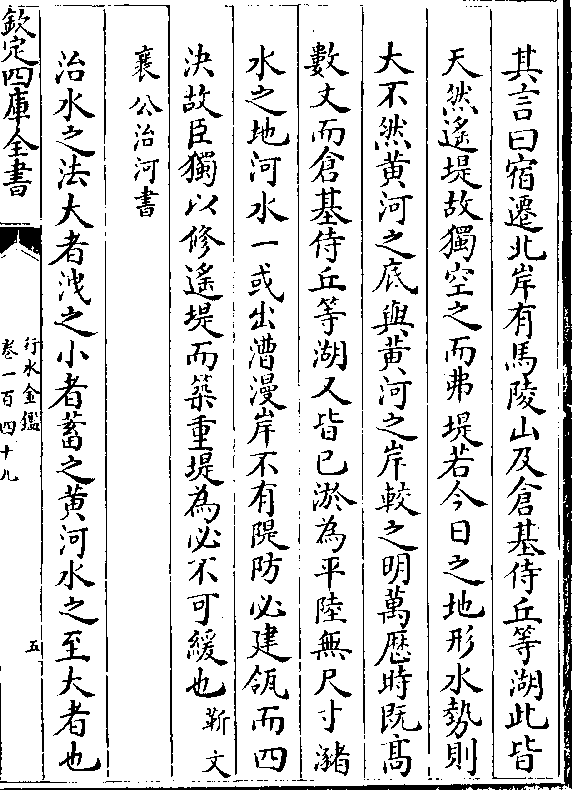 其言曰宿遷北岸有馬陵山及倉基侍丘等湖此皆
天然遙堤故獨空之而弗堤若今日之地形水勢則
大不然黄河之底與黄河之岸較之明萬厯時既髙
數丈而倉基侍丘等湖又皆已淤為平陸無尺寸瀦
水之地河水一或出漕漫岸不有隄防必建瓴而四
決故臣獨以修遙堤而築重堤為必不可緩也靳文
襄公治河書
治水之法大者洩之小者蓄之黄河水之至大者也
欽定四庫全書
行水金鑑
卷一百四十九
五